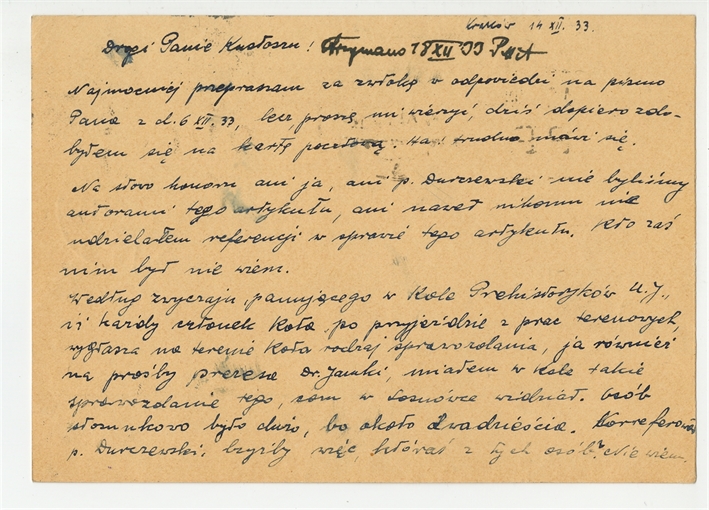 Kraków 14 XII. 33.
Drogi Panie Kustoszu! Otrzymano 18 XII 33
Najmocniej przepraszam za zwłokę w odpowiedzi na pismo
Pana z d. 6 XII. 33, lecz, proszę mi wierzyć, dziś dopiero zdo-
byłem się na kartę pocztową. Ha! trudno mówi się.
Na słowo honoru ani ja, ani p. Durczewski nie byliśmy
autorami tego artykułu, ani nawet nikomu nie
udzielałem referencji w sprawie tego artykułu. Kto zaś
nim był nie wiem.
Według zwyczaju, panującego w Kole Prehistoryków U.J.,
iż każdy członek Koła, po przyjeździe z prac terenowych,
wygłasza na terenie Koła rodzaj sprawozdania, ja również
na prośby prezesa Dr. Jamki, miałem w Kole takie
sprawozdanie tego, com w widział. Osób
stosunkowo było dużo, bo około dwadzieścia. Korreferował
p. Durczewski, byżby więc, któraś z tych osób? Nie wiem.